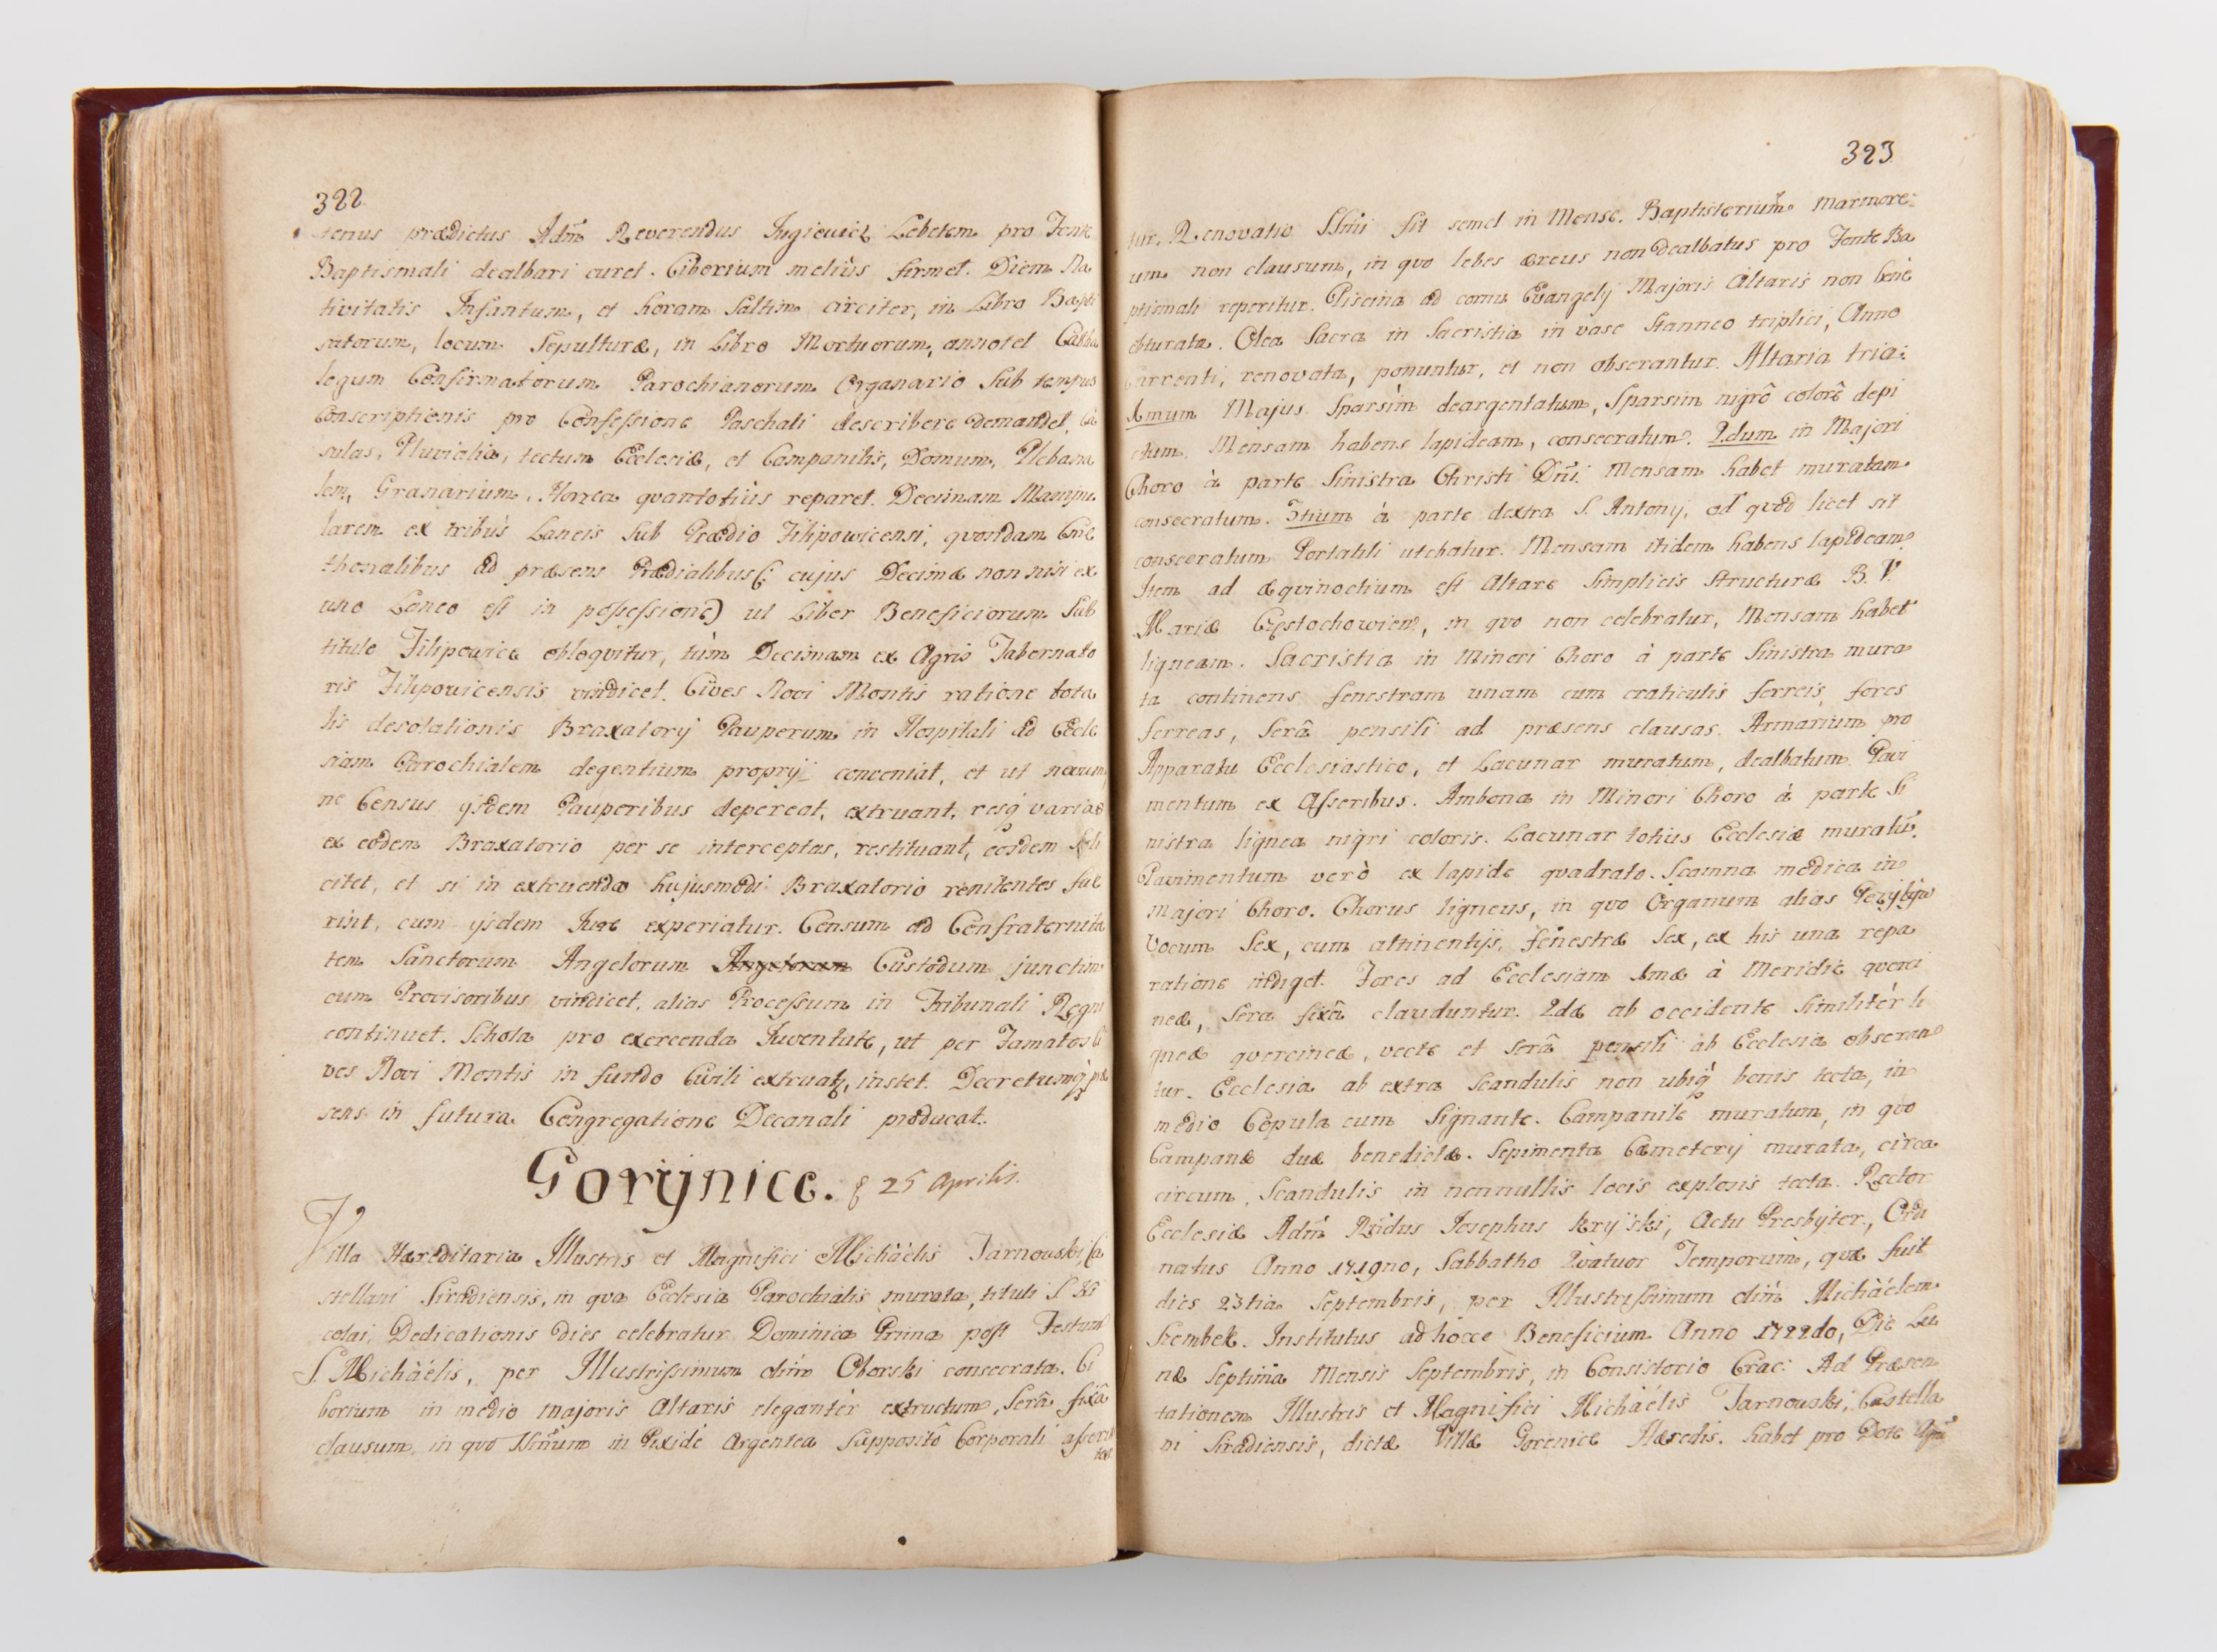 322
tenus prædictus Adm̄ Reverendus Jugiewicz Lebetem pro Fonte
Baptismali dealbari curet. Ciborium meliùs firmet. Diem Na
tivitatis Infantum, et horam saltim circiter, in Libro Bapti
satorum, locum Sepulturæ, in Libro Mortuorum, annotet Catha
legum Confirmatorum Parochianorum Organario sub tempus
Conscriptionis pro Confessione Paschali describere demandet,
sulas, Pluvialia, tectum Ecclesiæ, et Campanilis, Domum, Plebana
lem, Granarium, Horrea quantotiùs reparet. Decimam Manipu
larem ex tribùs Laneis sub Prædio Filipowicensi, quondam Cme
thonalibus ad præsens Prædialibus (: cujus Decimæ non nisi ex
uno Laneo est in possessione) ut Liber Beneficiorum sub
titulo Filipowice obloquitur, tùm Decimam ex Agris Tabernato
ris Filipowicensis vindicet. Cives Novi Montis ratione tota
lis desolationis Braxatorÿ Pauperum in Hospitali ad Eccle
siam Parochialem degentium proprÿ conveniat, et ut novum,
ne Census ÿsdem Pauperibus depereat, extruant, resq́ varias
ex eodem Braxatorio per se interceptas, restituant, eosdem soli
citet, et si in extruendo hujusmodi Braxatorio renitentes fue
rint, cum ÿsdem Jure experiatur. Censum ad Confraternita
tem Sanctorum Angelorum Angelorum Custodum junctim
cum Provisoribus vindicet, alias Processum in Tribunali Regni
continuet. Schola pro exercenda Juventute, ut per Famatos Ci
ves Novi Montis in fundo Civili extruatʒ, instet. Decretumq́ præ
sens in futura Congregatione Decanali producat.
Gorÿnice. 25 Aprilis.
Villa Hæreditaria Illustris et Magnifici Michàèlis Tarnowski, Ca
stellani Siradiensis, in qua Ecclesia Parochialis murata, tituli S. Ni
colai, Dedicationis Dies celebratur Dominica Prima post Festum
S. Michàélis, per Illustrissimum olim Oborski consecrata. Ci
borium in medio majoris Altaris elegantèr extructum, Serâ fixâ
clausum, in quo SSmum in Pixide Argentea supposito Corporali asserva
tur
323
tur. Renovatio SSmi fit semel in Mense. Baptisterium marmore:
um non clausum, in quo lebes æreus non dealbatus pro Fonte Ba
ptismali reperitur. Piscina ad cornu Evangelÿ Majoris Altaris non benè
obturata. Olea Sacra in Sacristia in vase Stanneo triplici, Anno
currenti, renovata, ponuntur, et non obserantur. Altaria tria:
1mum Majus Sparsìm deargentatum, Sparsim nigrô colorê depi
ctum, Mensam habens lapideam, consecratum. 2dum in Majori
Choro à parte Sinistra Christi Dn̄i. Mensam habet muratam
consecratum. 3tium à parte dextra S. Antonÿ, ad quod licet sit
consecratum Portatili utebatur. Mensam itidem habens lapideam.
Item ad æquinoctium est Altare Simplicis Structuræ B. V.
Mariæ Częstochowien, in quo non celebratur, Mensam habet
ligneam. Sacristia in Minori Choro à parte Sinistra mura
ta continens fenestram unam cum craticulis ferreis, fores
ferreas, Serâ pensili ad præsens clausas. Armarium pro
Apparatu Ecclesiastico, et Lacunar muratum, dealbatum. Pavi
mentum ex Asseribus. Ambona in Minori Choro à parte Si
nistra lignea nigri coloris. Lacunar totius Ecclesiæ muratū.
Pavimentum verò ex lapide quadrato. Scamna modica in
majori Choro. Chorus ligneus, in quo Organum alias Pozytyw
Vocum Sex, cum attinentÿs, fenestræ Sex, ex his una repa
ratione indiget. Fores ad Ecclesiam 1mæ à Meridie querci
neæ, Sera fixâ clauduntur. 2dæ ab occidente Similitèr li
gneæ quercineæ, vecte et serâ pensili ab Ecclesia obseran
tur. Ecclesia ab extra Scandulis non ubiq́ bonis tecta, in
medio Copula cum Signante. Campanile muratum, in quo
Campanæ duæ benedictæ. Sepimenta Cæmeterÿ murata, circa
circum, Scandulis in nonnullis locis explosis tecta. Rector
Ecclesiæ Adm̄ Rn̄dus Josephus Kryiski, Actu Presbyter, Ordi
natus Anno 1719no, Sabbatho Quatuor Temporum, quæ fuit
dies 23tia Septembris, per Illustrissimum olim Michàélem
Szembek. Institutus ad hocce Beneficium Anno 1722do, Die Lu
næ Septima Mensis Septembris, in Consistorio Crac: Ad Præsen
tationem Illustris et Magnifici Michàélis Tarnowski, Castella
ni Siradiensis, dictæ Villæ Gorenice Hæredis. Habet pro Dote Agru